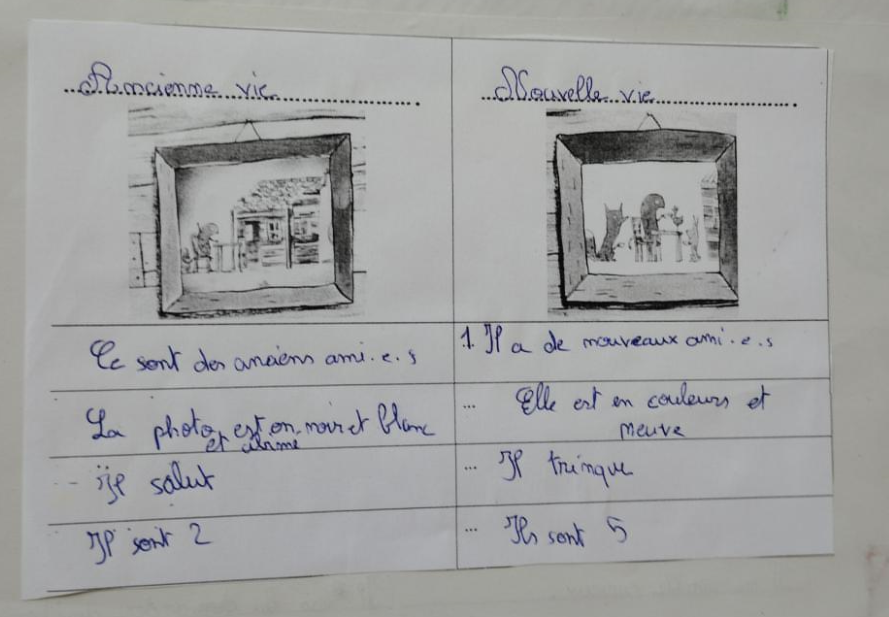 Ancienne vie
Nouvelle vie
Ce sont des anciens ami.e.s
1. Il a de nouveaux ami.e.s
La photo est en noir et blanc
et
... Elle est en couleurs et
neuve
Il salut
... Il trinque
Il sont 2
... Ils sont 5